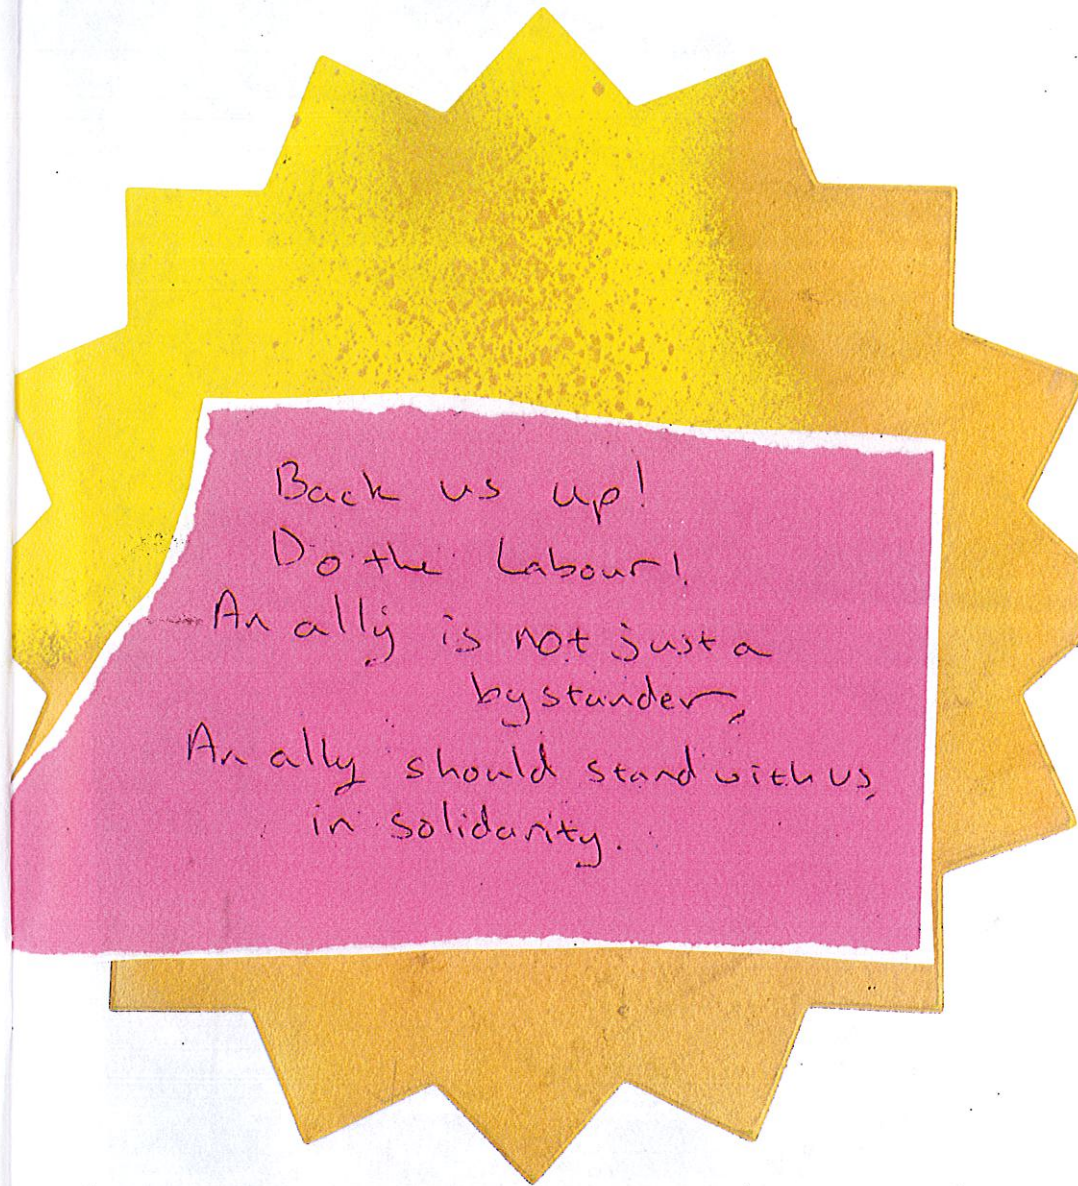 Back us up!
Do the Labour!
An ally is not just a
bystander,
An ally should stand with us,
in solidarity.